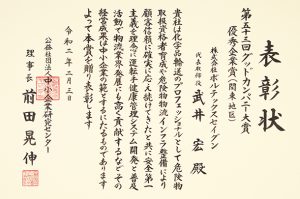 表彰状
第五十三回グッドカンパニー大賞
優秀企業賞(関東地区)
株式会社ボルテックスセイグン
代表取締役 武井 宏殿
貴社は化学品輸送のプロフェッショナルとして危険物
取扱資格者育成や危険物物流インフラ整備により
顧客信頼に確実に応え続けてきたと共に安全第一
主義を理念に運転手健康管理システム開発と普及
活動で物流業界発展にも高く貢献するなどその
経営成果は中小企業の範とするにたるものであります
よって本賞を贈り表彰します
令和二年三月三日
公益社団法人中小企業研究センター
理事長 前田晃伸